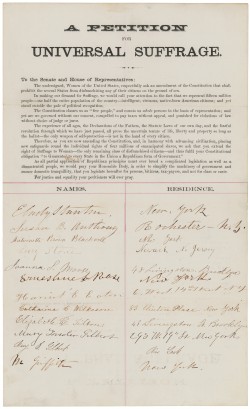 A PETITION
FOR
UNIVERSAL SUFFRAGE.
To the Senate and House of Representatives:
The undersigned, Women of the United States, respectfully ask an amendment of the Constitution that shall
prohibit the several States from disfranchising any of their citizens on the ground of sex.
In making our demand for Suffrage, we would call your attention to the fact that we represent fifteen million
people—one half the entire population of the country—intelligent, virtuous, native-born American citizens; and yet
stand outside the pale of political recognition.
The Constitution classes us as "free people," and counts us whole persons in the basis of representation; and
yet are we governed without our consent, compelled to pay taxes without appeal, and punished for violations of law
without choice of judge or juror.
The experience of all ages, the Declarations of the Fathers, the Statute Laws of our own day, and the fearful
revolution through which we have just passed, all prove the uncertain tenure of life, liberty and property so long as
the ballot—the only weapon of self-protection—is not in the hand of every citizen.
Therefore, as you are now amending the Constitution, and, in harmony with advancing civilization, placing
new safeguards round the individual rights of four millions of emancipated slaves, we ask that you extend the
right of Suffrage to Woman—the only remaining class of disfranchised citizens—and thus fulfil your Constitutional
obligation "to Guarantee to every State in the Union a Republican form of Government."
As all partial application of Republican principles must ever breed a complicated legislation as well as a
discontented people, we would pray your Honorable Body, in order to simplify the machinery of government and
ensure domestic tranquillity, that you legislate hereafter for persons, citizens, tax-payers, and not for class or caste.
For justice and equality your petitioners will ever pray.
NAMES. RESIDENCE.
E. Cady Stanton New York
Susan B. Anthony Rochester N.Y.
Antoinette Brown Blackwell
Lucy Stone Newark N. Jersey
Joanna S. Morse 48 Livingston Brooklyn
Ernestine L. Rose New York
Harriet E. Eaton 6 West 14th Street N.Y.
Catharine C. Wilkeson
Elizabeth R. Tilton 48 Livingston St. Brooklyn
Mary Fowler Gilbert 293 W. 19th St. New York
New York